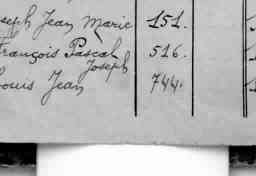 oseph Jean Marie 151.
François Pascal 516.
Joseph
Louis Jean 744.